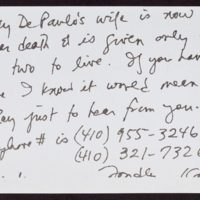 ay De Paulo's wife is now
ar death & is given only
two to live. If you have
e I know it would mean
Ray just to hear from you.
phone # is (410) 955-3246
(410) 321-7326
Fondle